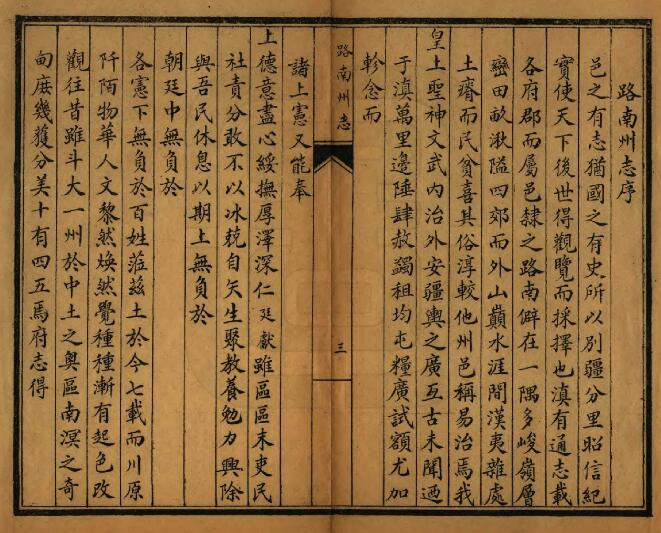 路南州志序
邑之有志猶國之有史所以別疆分里昭信紀
實使天下後世得觀覽而採擇也滇有通志載
各府郡而屬邑隸之路南僻在一隅多峻嶺層
巒田畝湫隘四郊而外山巔水涯間漢夷雜處
土瘠而民貧喜其俗淳較他州邑稱易治焉我
皇上聖神文武內治外安疆輿之廣亙古未聞迺
于滇萬里邊陲肆赦蠲租均屯糧廣試額尤加
軫念而
路南州志
三
諸上憲又能奉
上德意盡心綏撫厚澤深仁廷獻雖區區末吏民
社責分敢不以冰兢自矢生聚教養勉力興除
與吾民休息以期上無負於
朝廷中無負於
各憲下無負於百姓蒞茲土於今七載而川原
阡陌物華人文黎然煥然覺種種漸有起色攷
觀往昔雖斗大一州於中土之奧區南溟之奇
甸庶幾獲分美十有四五焉府志得